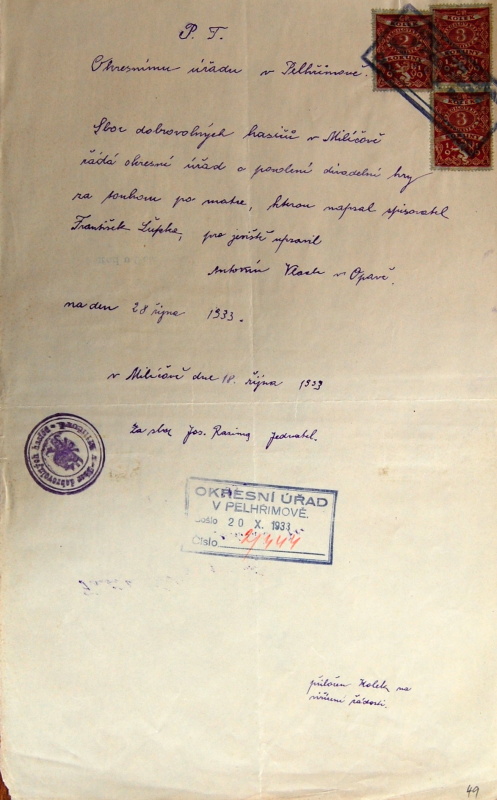 P. T.
Okresnímu úřadu v Pelhřimově.
Sbor dobrovolných hasičů v Milíčově
žádá okresní úřad o povolení divadelní hry
za touhou po matce, kterou napsal spisovatel
František Lupka, pro jeviště upravil
Antonín Vlach v Opavě.
na den 28 října 1933.
v Milíčově dne 18. října 1933
Za sbor Jos. Rasima jednatel.
OKRESNÍ ÚŘAD
V PELHŘIMOVĚ.
Došlo 20 X. 1933
Číslo
přiložen Kolek na
vyřízení žádosti.
49
KOLEK
5
KOLEK
3
KOLEK
3